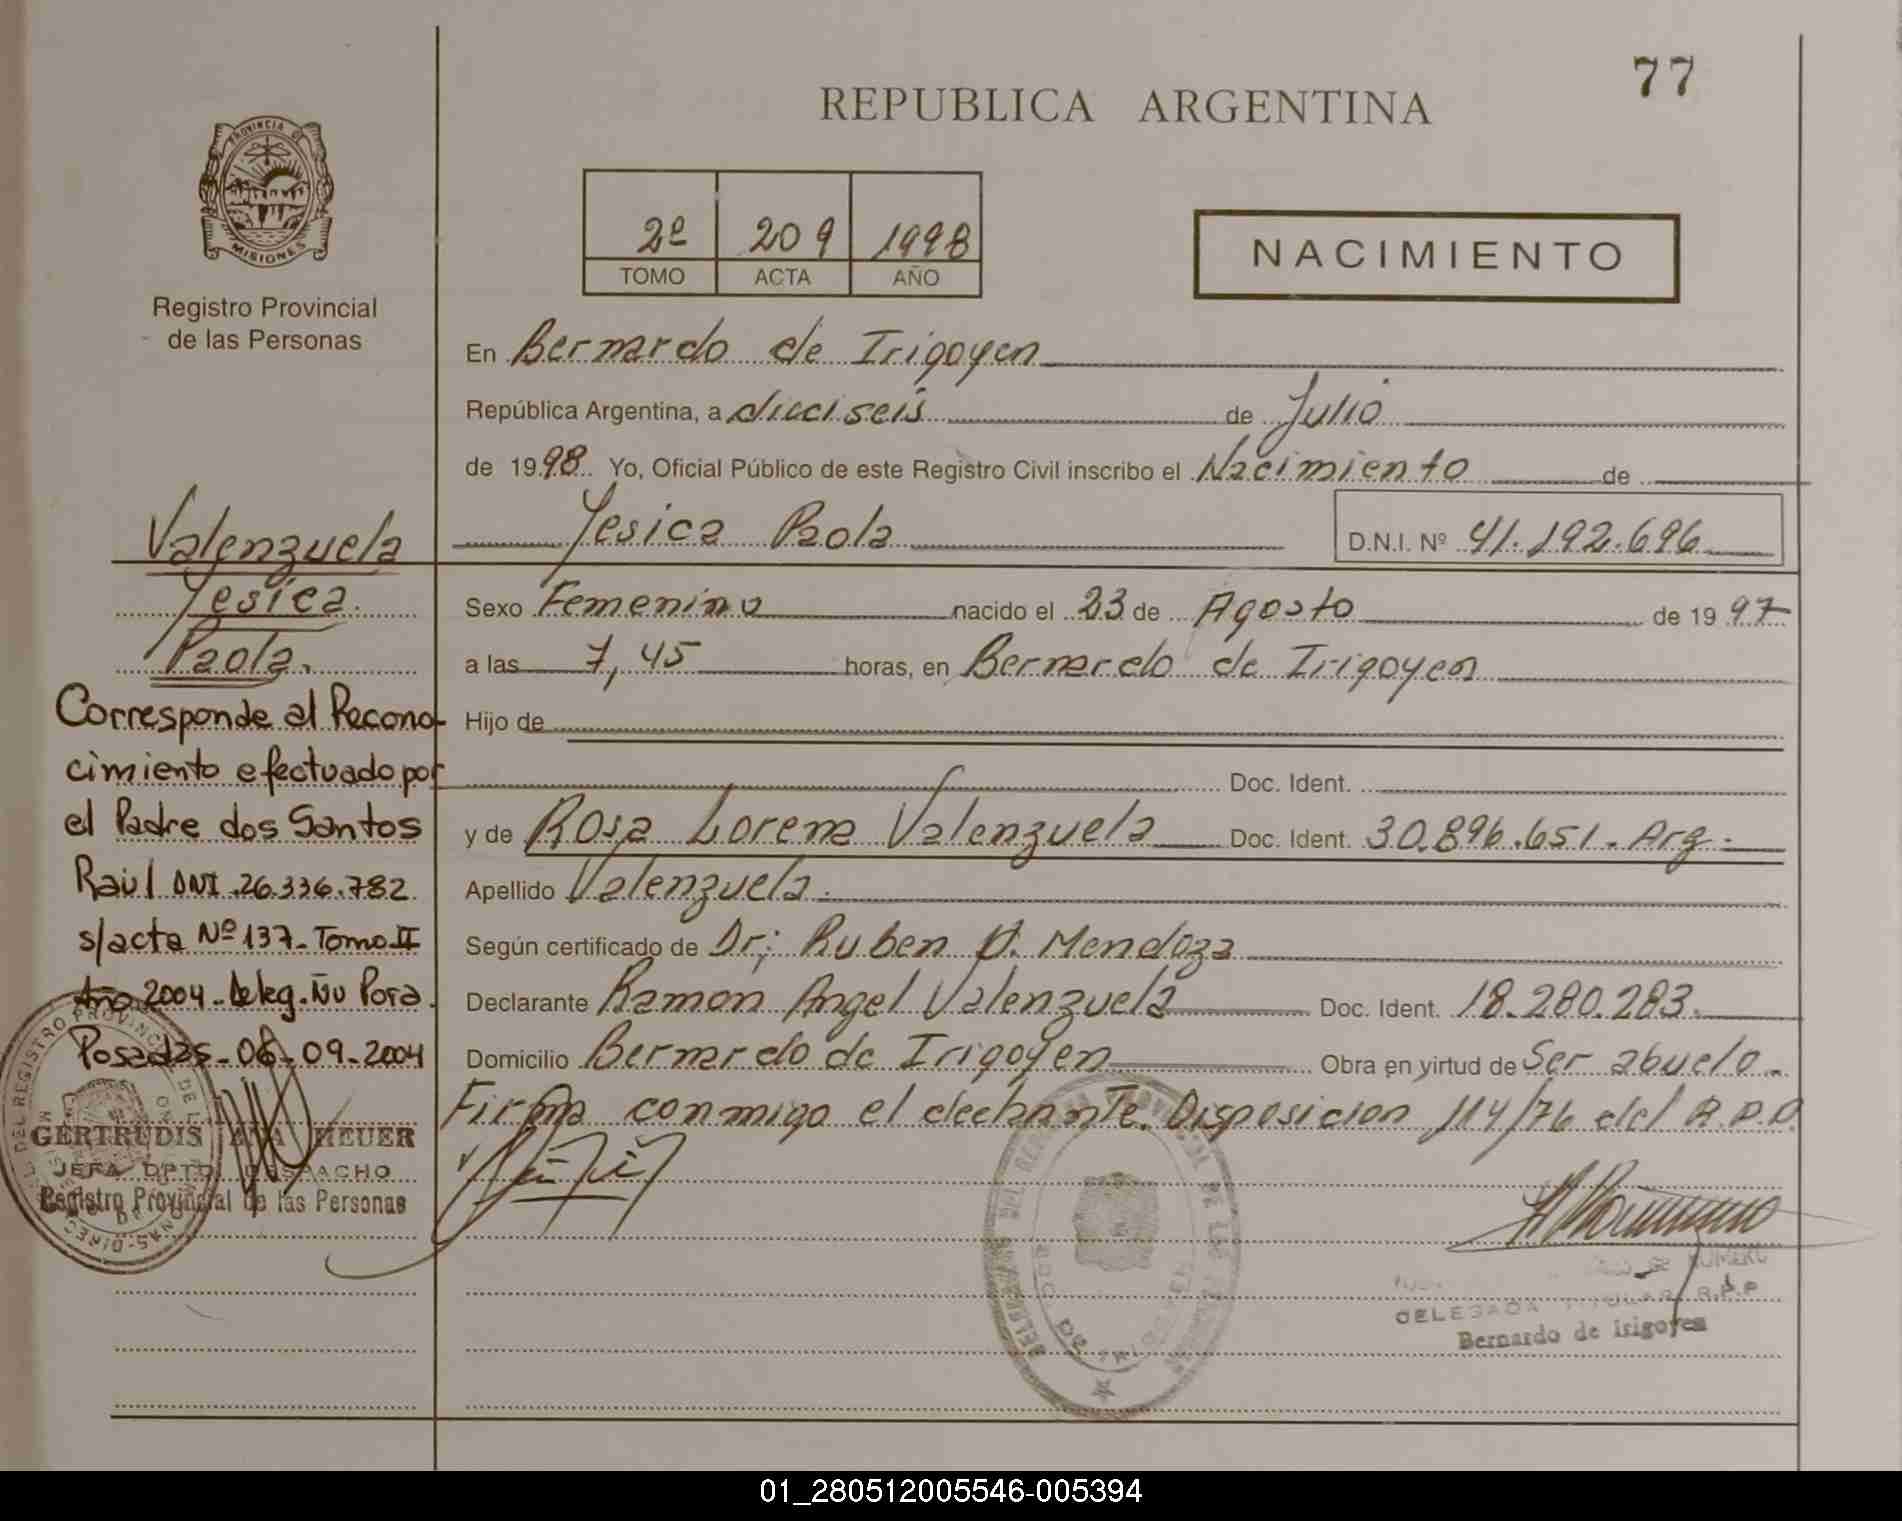 77
REPUBLICA ARGENTINA
PROVINCIA DE
MISIONES
Registro Provincial
de las Personas
2º 209 1998
TOMO ACTA AÑO
NACIMIENTO
En Bernardo de Irigoyen
República Argentina, a dieciseis de Julio
de 1998 Yo, Oficial Público de este Registro Civil inscribo el Nacimiento de
Yesica Paola D.N.I. Nº 41.192.696
Sexo Femenino nacido el 23 de Agosto de 1997
a las 7,45 horas, en Bernardo de Irigoyen
Hijo de
Doc. Ident.
y de Rosa Lorena Valenzuela Doc. Ident. 30.896.651. Arg.
Apellido Valenzuela.
Según certificado de Dr; Ruben D. Mendoza
Declarante Ramon Angel Valenzuela Doc. Ident. 18.280.283.
Domicilio Bernardo de Irigoyen Obra en virtud de Ser abuelo.
Firma conmigo el declarante. Disposicion 114/76 del R.P.P.
Valenzuela
Yesica
Paola.
Corresponde al Recono-
cimiento efectuado por
el Padre dos Santos
Raúl DNI.26.336.782
s/acta Nº 137-Tomo II
Año 2004-Deleg.Ñu Pora.
Posadas-06-09-2004
GERTRUDIS EVA HEUER
JEFA DPTO. DESPACHO
Registro Provincial de las Personas
DELEGADA TITULAR R.P.P
Bernardo de Irigoyen
01_280512005546-005394